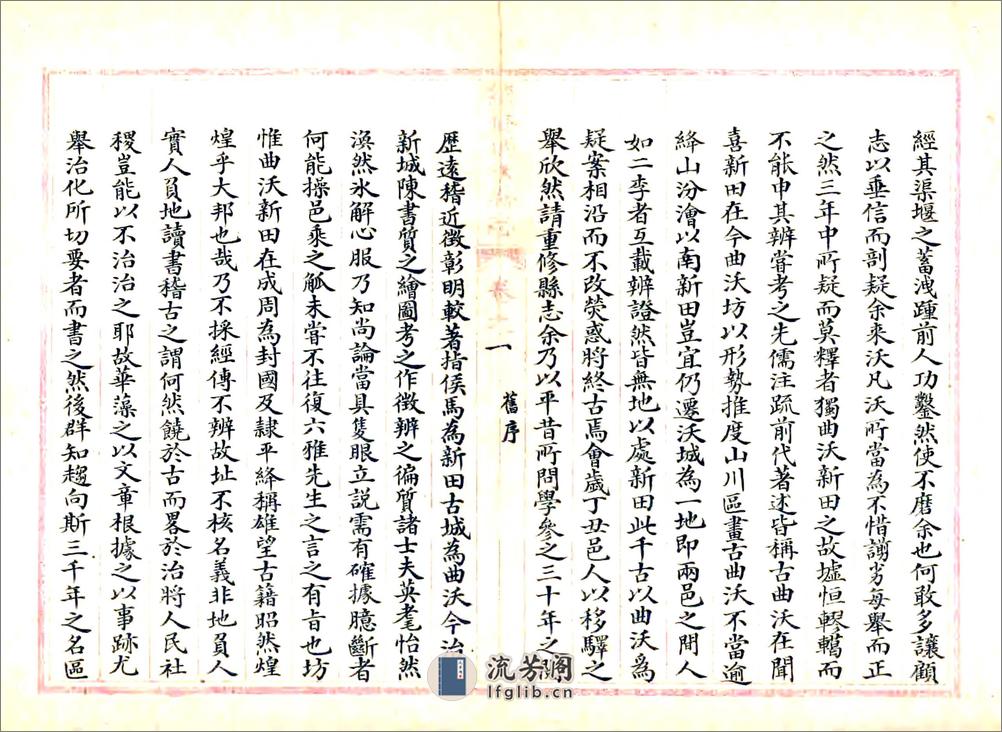 經其渠堰之蓄洩踵前人功鑿然使不磨余也何敢多讓顧
志以垂信而剖疑余來沃凡沃所當為不惜謭劣每舉而正
之然三年中所疑而莫釋者獨曲沃新田之故墟恒轇轕而
不能申其辨嘗考之先儒注疏前代著述皆稱古曲沃在聞
喜新田在今曲沃坊以形勢推度山川區畫古曲沃不當逾
絳山汾澮以南新田豈宜仍遷沃城為一地即兩邑之間人
如二李者互載辨證然皆無地以處新田此千古以曲沃為
疑案相沿而不改熒惑將終古焉會歲丁丑邑人以移驛之
舉欣然請重修縣志余乃以平昔所問學參之三十年之
卷十二
舊序
一
歷遠稽近徵彰明較著指侯馬為新田古城為曲沃今治
新城陳書質之繪圖考之作徵辨之徧質諸士夫英耄怡然
渙然氷解心服乃知尚論當具隻眼立説需有確據臆斷者
何能操邑乘之觚未嘗不往復六雅先生之言之有旨也坊
惟曲沃新田在成周為封國及隸平絳稱雄望古籍昭然煌
煌乎大邦也哉乃不採經傳不辨故址不核名義非地負人
實人負地讀書稽古之謂何然饒於古而畧於治將人民社
稷豈能以不治治之耶故華藻之以文章根據之以事跡尤
舉治化所切要者而書之然後群知趨向斯三千年之名區
流芳阁
lfglib.cn